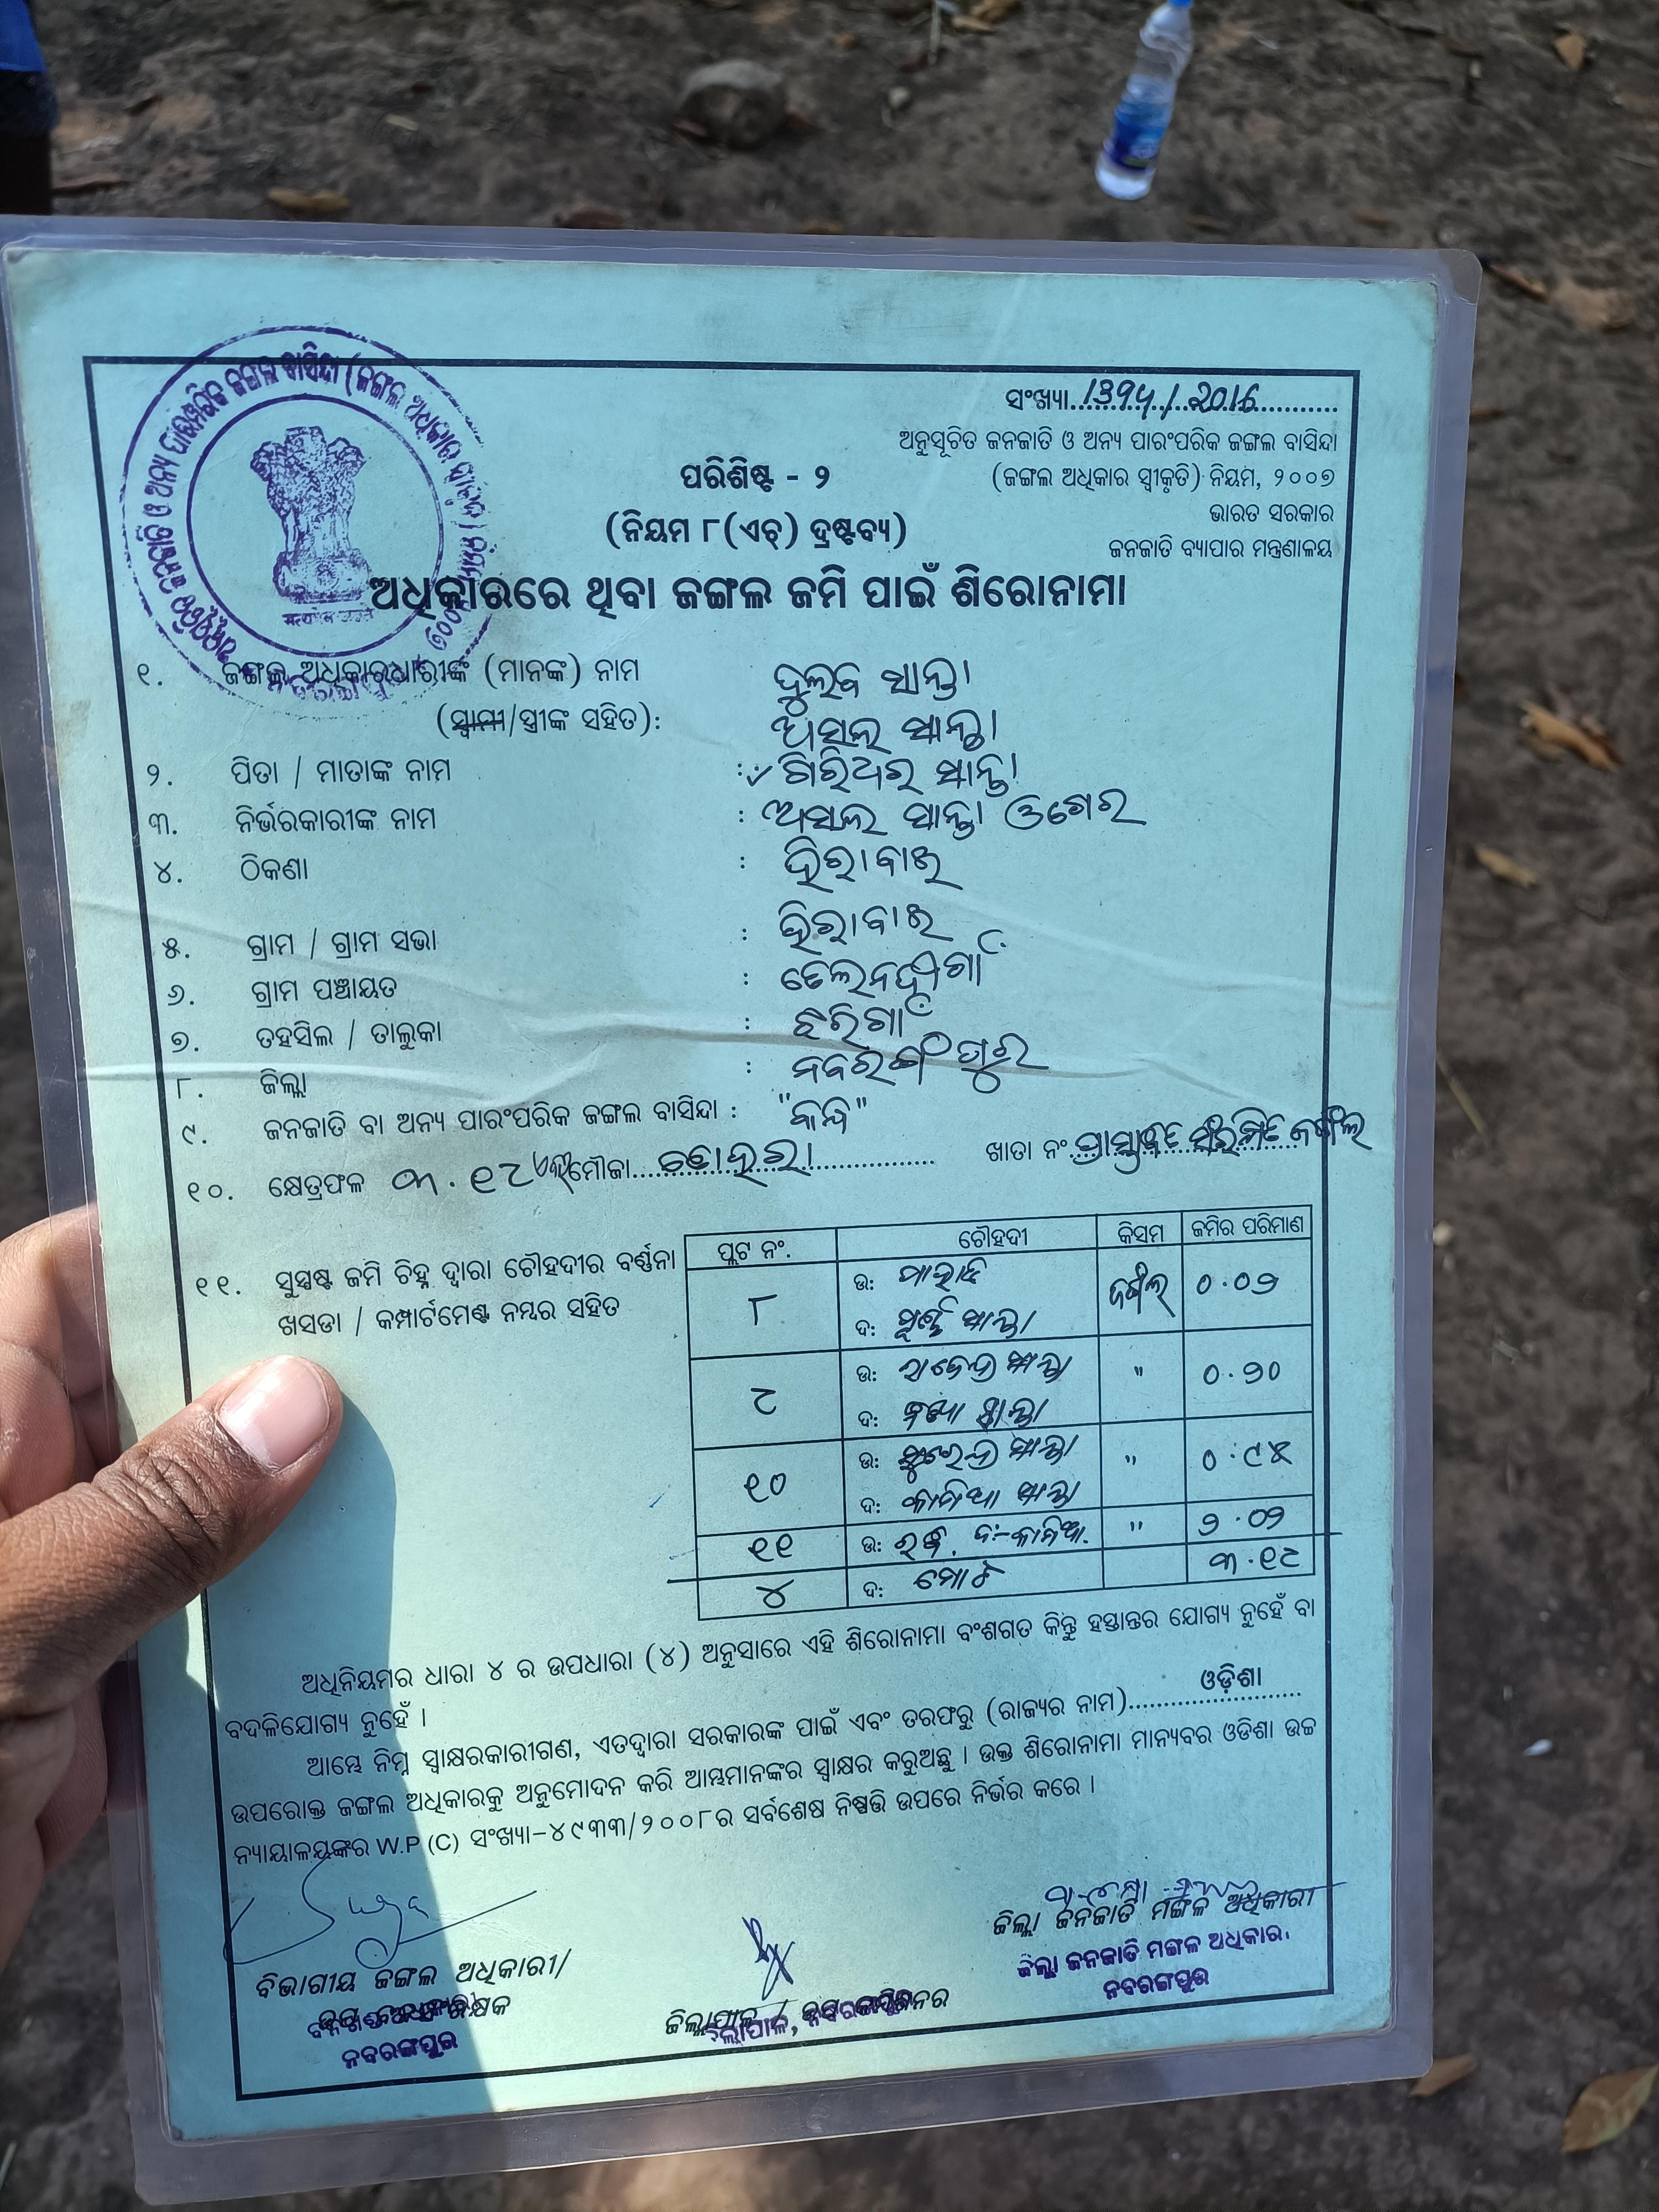 ସଂଖ୍ୟା.............../ 2016
ଅନୁସୂଚିତ ଜନଜାତି ଓ ଅନ୍ୟ ପାରଂପରିକ ଜଙ୍ଗଲ ବାସିନ୍ଦା
(ଜଙ୍ଗଲ ଅଧିକାର ସ୍ୱୀକୃତି) ନିୟମ, ୨୦୦୭
ଭାରତ ସରକାର
ଜନଜାତି ବ୍ୟାପାର ମନ୍ତ୍ରଣାଳୟ
ପରିଶିଷ୍ଟ - ୨
(ନିୟମ ୮(ଏଚ୍) ଦ୍ରଷ୍ଟବ୍ୟ)
ଅଧିକାରରେ ଥିବା ଜଙ୍ଗଲ ଜମି ପାଇଁ ଶିରୋନାମା
୧. ଜଙ୍ଗଲ ଅଧିକାରଧାରୀଙ୍କ (ମାନଙ୍କ) ନାମ ଦୁଲବ ସାନ୍ତା
(ସ୍ୱାମୀ/ସ୍ତ୍ରୀଙ୍କ ସହିତ): ଅସଲ ସାନ୍ତା
୨. ପିତା / ମାତାଙ୍କ ନାମ : ଗିରିଧର ସାନ୍ତା
୩. ନିର୍ଭରକାରୀଙ୍କ ନାମ : ଅସଲ ସାନ୍ତା ଓଗେର
୪. ଠିକଣା : ହିରାବାଇ
୫. ଗ୍ରାମ / ଗ୍ରାମ ସଭା : ହିରାବାଇ
୬. ଗ୍ରାମ ପଞ୍ଚାୟତ : ତେଲନଦୀଗାଁ
୭. ତହସିଲ / ତାଲୁକା : ଝରିଗାଁ
୮. ଜିଲ୍ଲା : ନବରଙ୍ଗପୁର
୯. ଜନଜାତି ବା ଅନ୍ୟ ପାରଂପରିକ ଜଙ୍ଗଲ ବାସିନ୍ଦା : "କନ୍ଧ"
୧୦. କ୍ଷେତ୍ରଫଳ ୩.୧୯ ମୌଜା............... ଖାତା ନଂ. ପ୍ରସ୍ତାବିତ ସଂରକ୍ଷିତ ଜଙ୍ଗଲ
୧୧. ସୁସ୍ପଷ୍ଟ ଜମି ଚିହ୍ନ ଦ୍ୱାରା ଚୌହଦୀର ବର୍ଣ୍ଣନା
ଖସଡା / କମ୍ପାର୍ଟମେଣ୍ଟ ନମ୍ବର ସହିତ
ପ୍ଲଟ ନଂ. ଚୌହଦୀ କିସମ ଜମିର ପରିମାଣ
୮ ଉ: ପାହାଡ ଜଙ୍ଗଲ ୦.୦୨
ଦ: ପୂର୍ଣ୍ଣ ସାନ୍ତା
୯ ଉ: ରାଜେନ୍ଦ୍ର ସାନ୍ତା " ୦.୨୦
ଦ: ସାନ୍ତା
୧୦ ଉ: ସୁରେନ୍ଦ୍ର ସାନ୍ତା " ୦.୯୫
ଦ: ସାନ୍ତା
୧୧ ଉ: ଦ:- " ୨.୦୨
୪ ଦ: ମୋଟ ୩.୧୯
ଅଧିନିୟମର ଧାରା ୪ ର ଉପଧାରା (୪) ଅନୁସାରେ ଏହି ଶିରୋନାମା ବଂଶଗତ କିନ୍ତୁ ହସ୍ତାନ୍ତର ଯୋଗ୍ୟ ନୁହେଁ ବା
ବଦଳିଯୋଗ୍ୟ ନୁହେଁ ।
ଆମ୍ଭେ ନିମ୍ନ ସ୍ୱାକ୍ଷରକାରୀଗଣ, ଏତଦ୍ୱାରା ସରକାରଙ୍କ ପାଇଁ ଏବଂ ତରଫରୁ (ରାଜ୍ୟର ନାମ)......ଓଡ଼ିଶା......
ଉପରୋକ୍ତ ଜଙ୍ଗଲ ଅଧିକାରକୁ ଅନୁମୋଦନ କରି ଆମ୍ଭମାନଙ୍କର ସ୍ୱାକ୍ଷର କରୁଅଛୁ । ଉକ୍ତ ଶିରୋନାମା ମାନ୍ୟବର ଓଡିଶା ଉଚ୍ଚ
ନ୍ୟାୟାଳୟଙ୍କର W.P (C) ସଂଖ୍ୟା-୪୯୩୩/୨୦୦୮ର ସର୍ବଶେଷ ନିଷ୍ପତ୍ତି ଉପରେ ନିର୍ଭର କରେ ।
ଜିଲ୍ଲା ଜନଜାତି ମଙ୍ଗଳ ଅଧିକାରୀ
ଜିଲ୍ଲା ଜନଜାତି ମଙ୍ଗଳ ଅଧିକାରୀ
ନବରଙ୍ଗପୁର
ବିଭାଗୀୟ ଜଙ୍ଗଲ ଅଧିକାରୀ/
ନବରଙ୍ଗପୁର
ଜିଲ୍ଲାପାଳ /
ଜିଲ୍ଲାପାଳ, ନବରଙ୍ଗପୁର